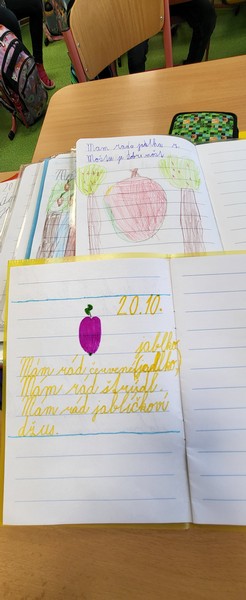 Mám ráda jablka z
20.10.
jablko
Mám rád červené jadlko,
Mám rád štrúdl.
Mám rád jablíčkoví
džus.